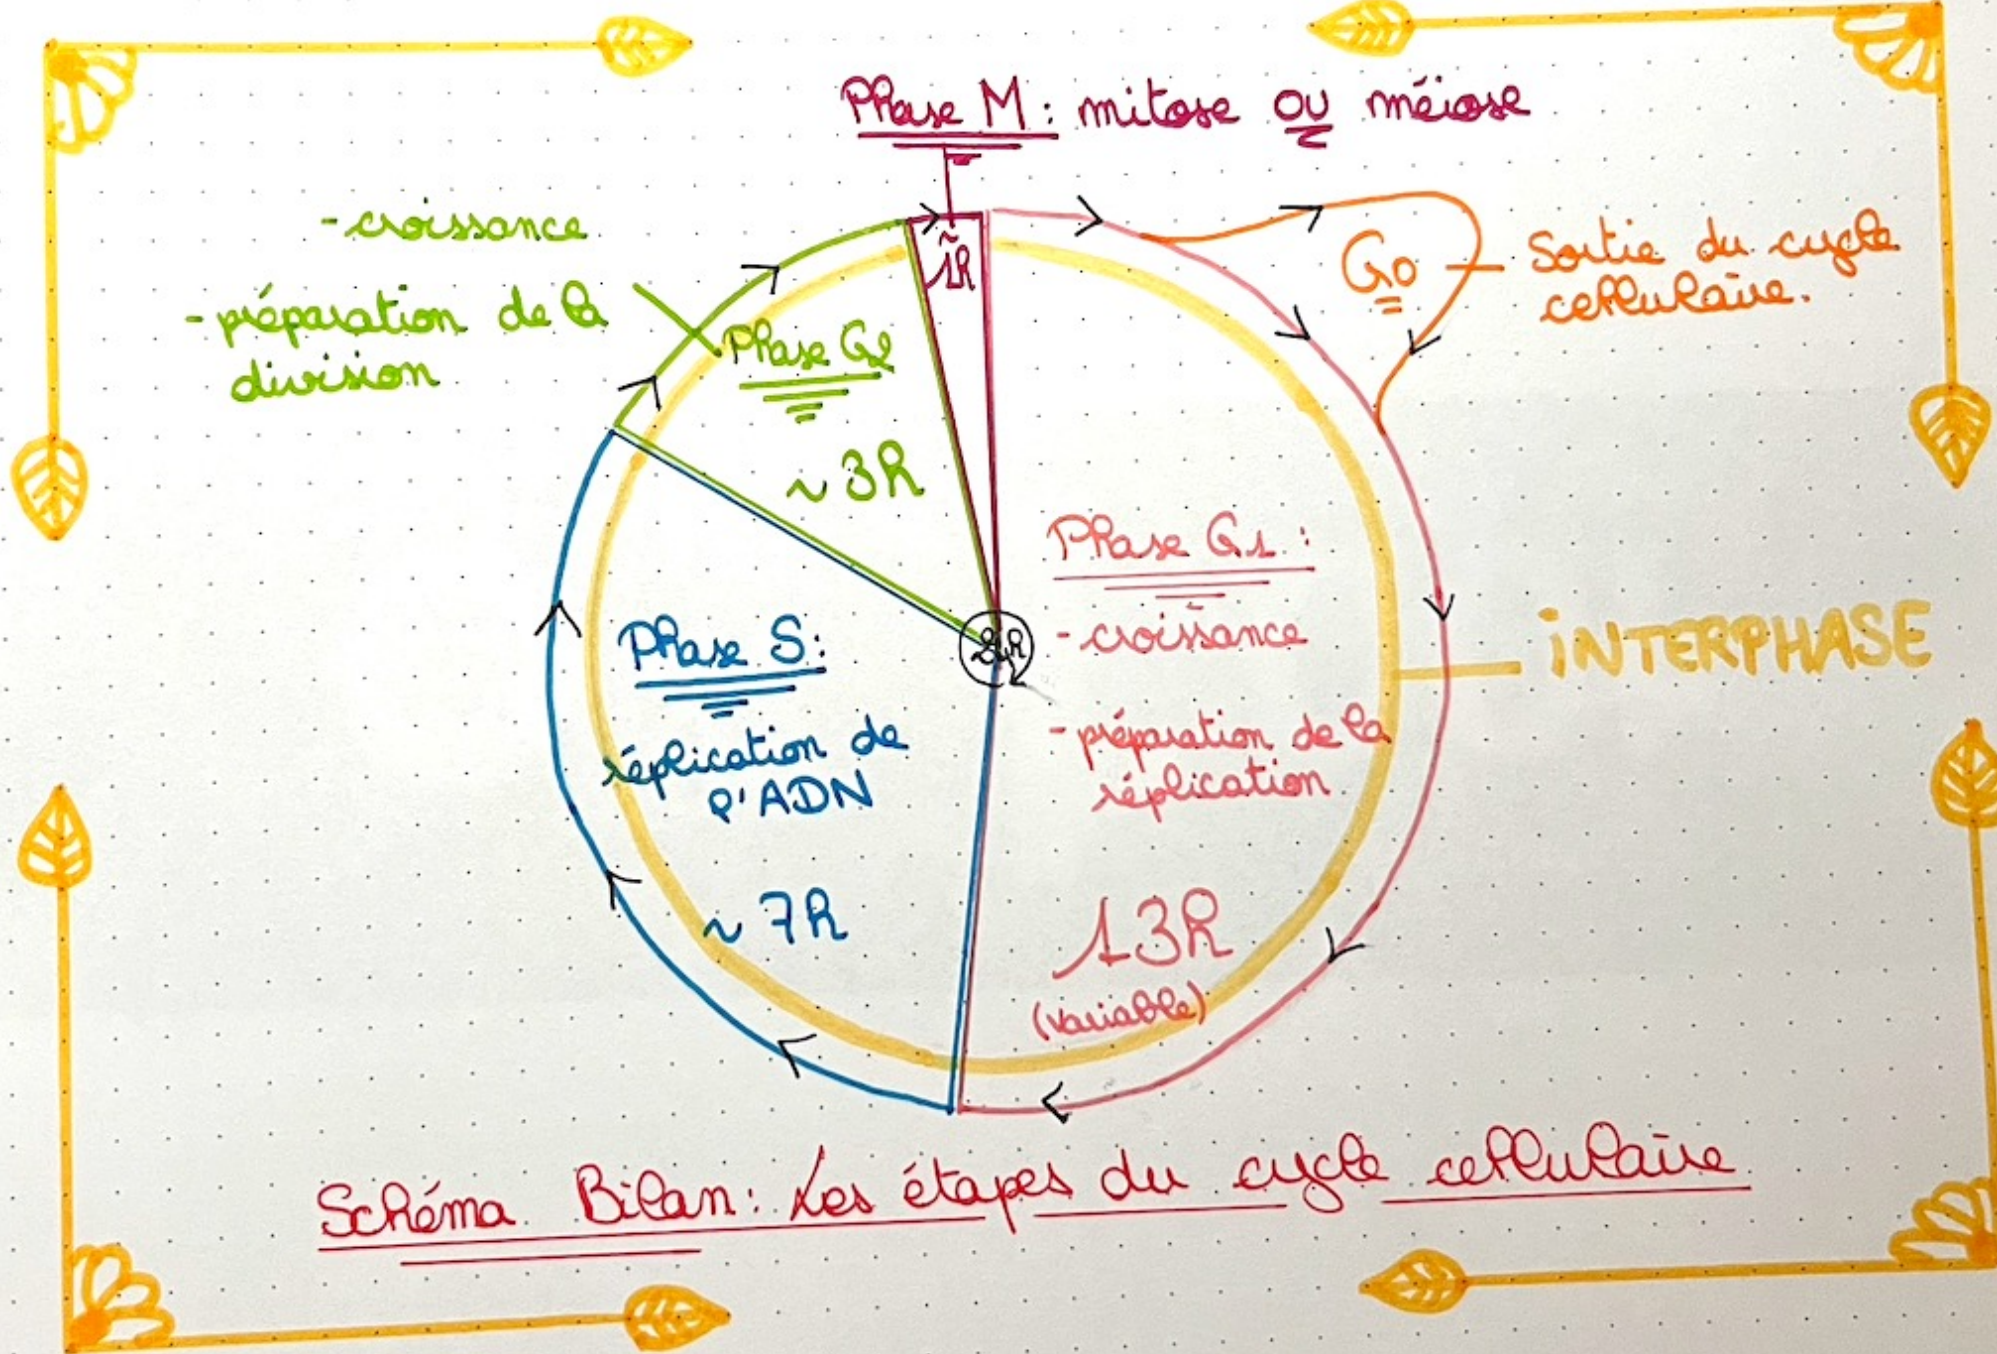 Phase M : mitose OU méiose
- croissance
- préparation de la
division
~
1h
G0
Sortie du cycle
cellulaire.
Phase G2
~ 3h
Phase G1 :
- croissance
- préparation de la
réplication
13h
(variable)
24h
INTERPHASE
Phase S :
réplication de
l'ADN
~ 7h
Schéma Bilan : Les étapes du cycle cellulaire